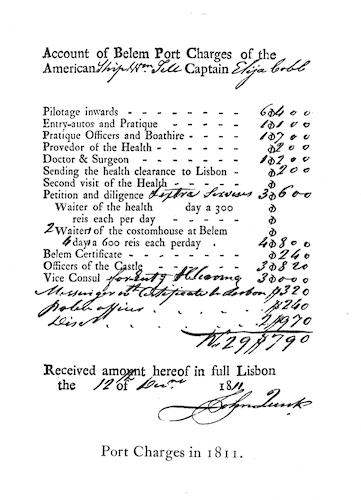 Account of Belem Port Charges of the
American Ship Wm Tell Captain Elija Cobb
Pilotage inwards - - - - - - - 6$400
Entry-autos and Pratique - - - - 1$100
Pratique Officers and Boathire - - - - 1$700
Provedor of the Health - - - - - $200
Doctor & Surgeon - - - - - 1$200
Sending the health clearance to Lisbon - $200
Second visit of the Health - - - - $
Petition and diligence Extra 3$600
Waiter of the health day a 300
reis each per day - - - - - - $
2 Waiters of the costomhouse at Belem
4 days a 600 reis each perday - 4$800
Belem Certificate - - - - - - $240
Officers of the Castle - - - - - 3$820
Vice Consul for entg & Clearing 3$000
Messenger with Certificate to Lisbon $320
Police officer $240
2$970
Rs. 29$790
Received amount hereof in full Lisbon
the 12th of Decre 1811,
John
Port Charges in 1811.